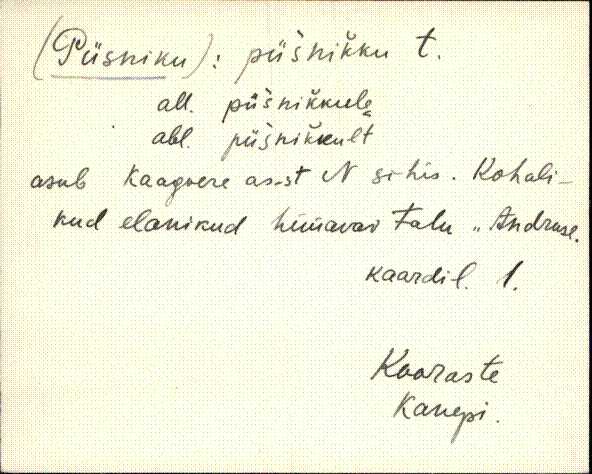 (Püsniku): püšnikku t.
all. püšnikkule
abl. püšnikkult
asub Kaagvere as-st N sihis. Kohali-
kud elanikud hüüavad talu „Andruse.
kaardil. 1.
Kooraste
Kanepi.